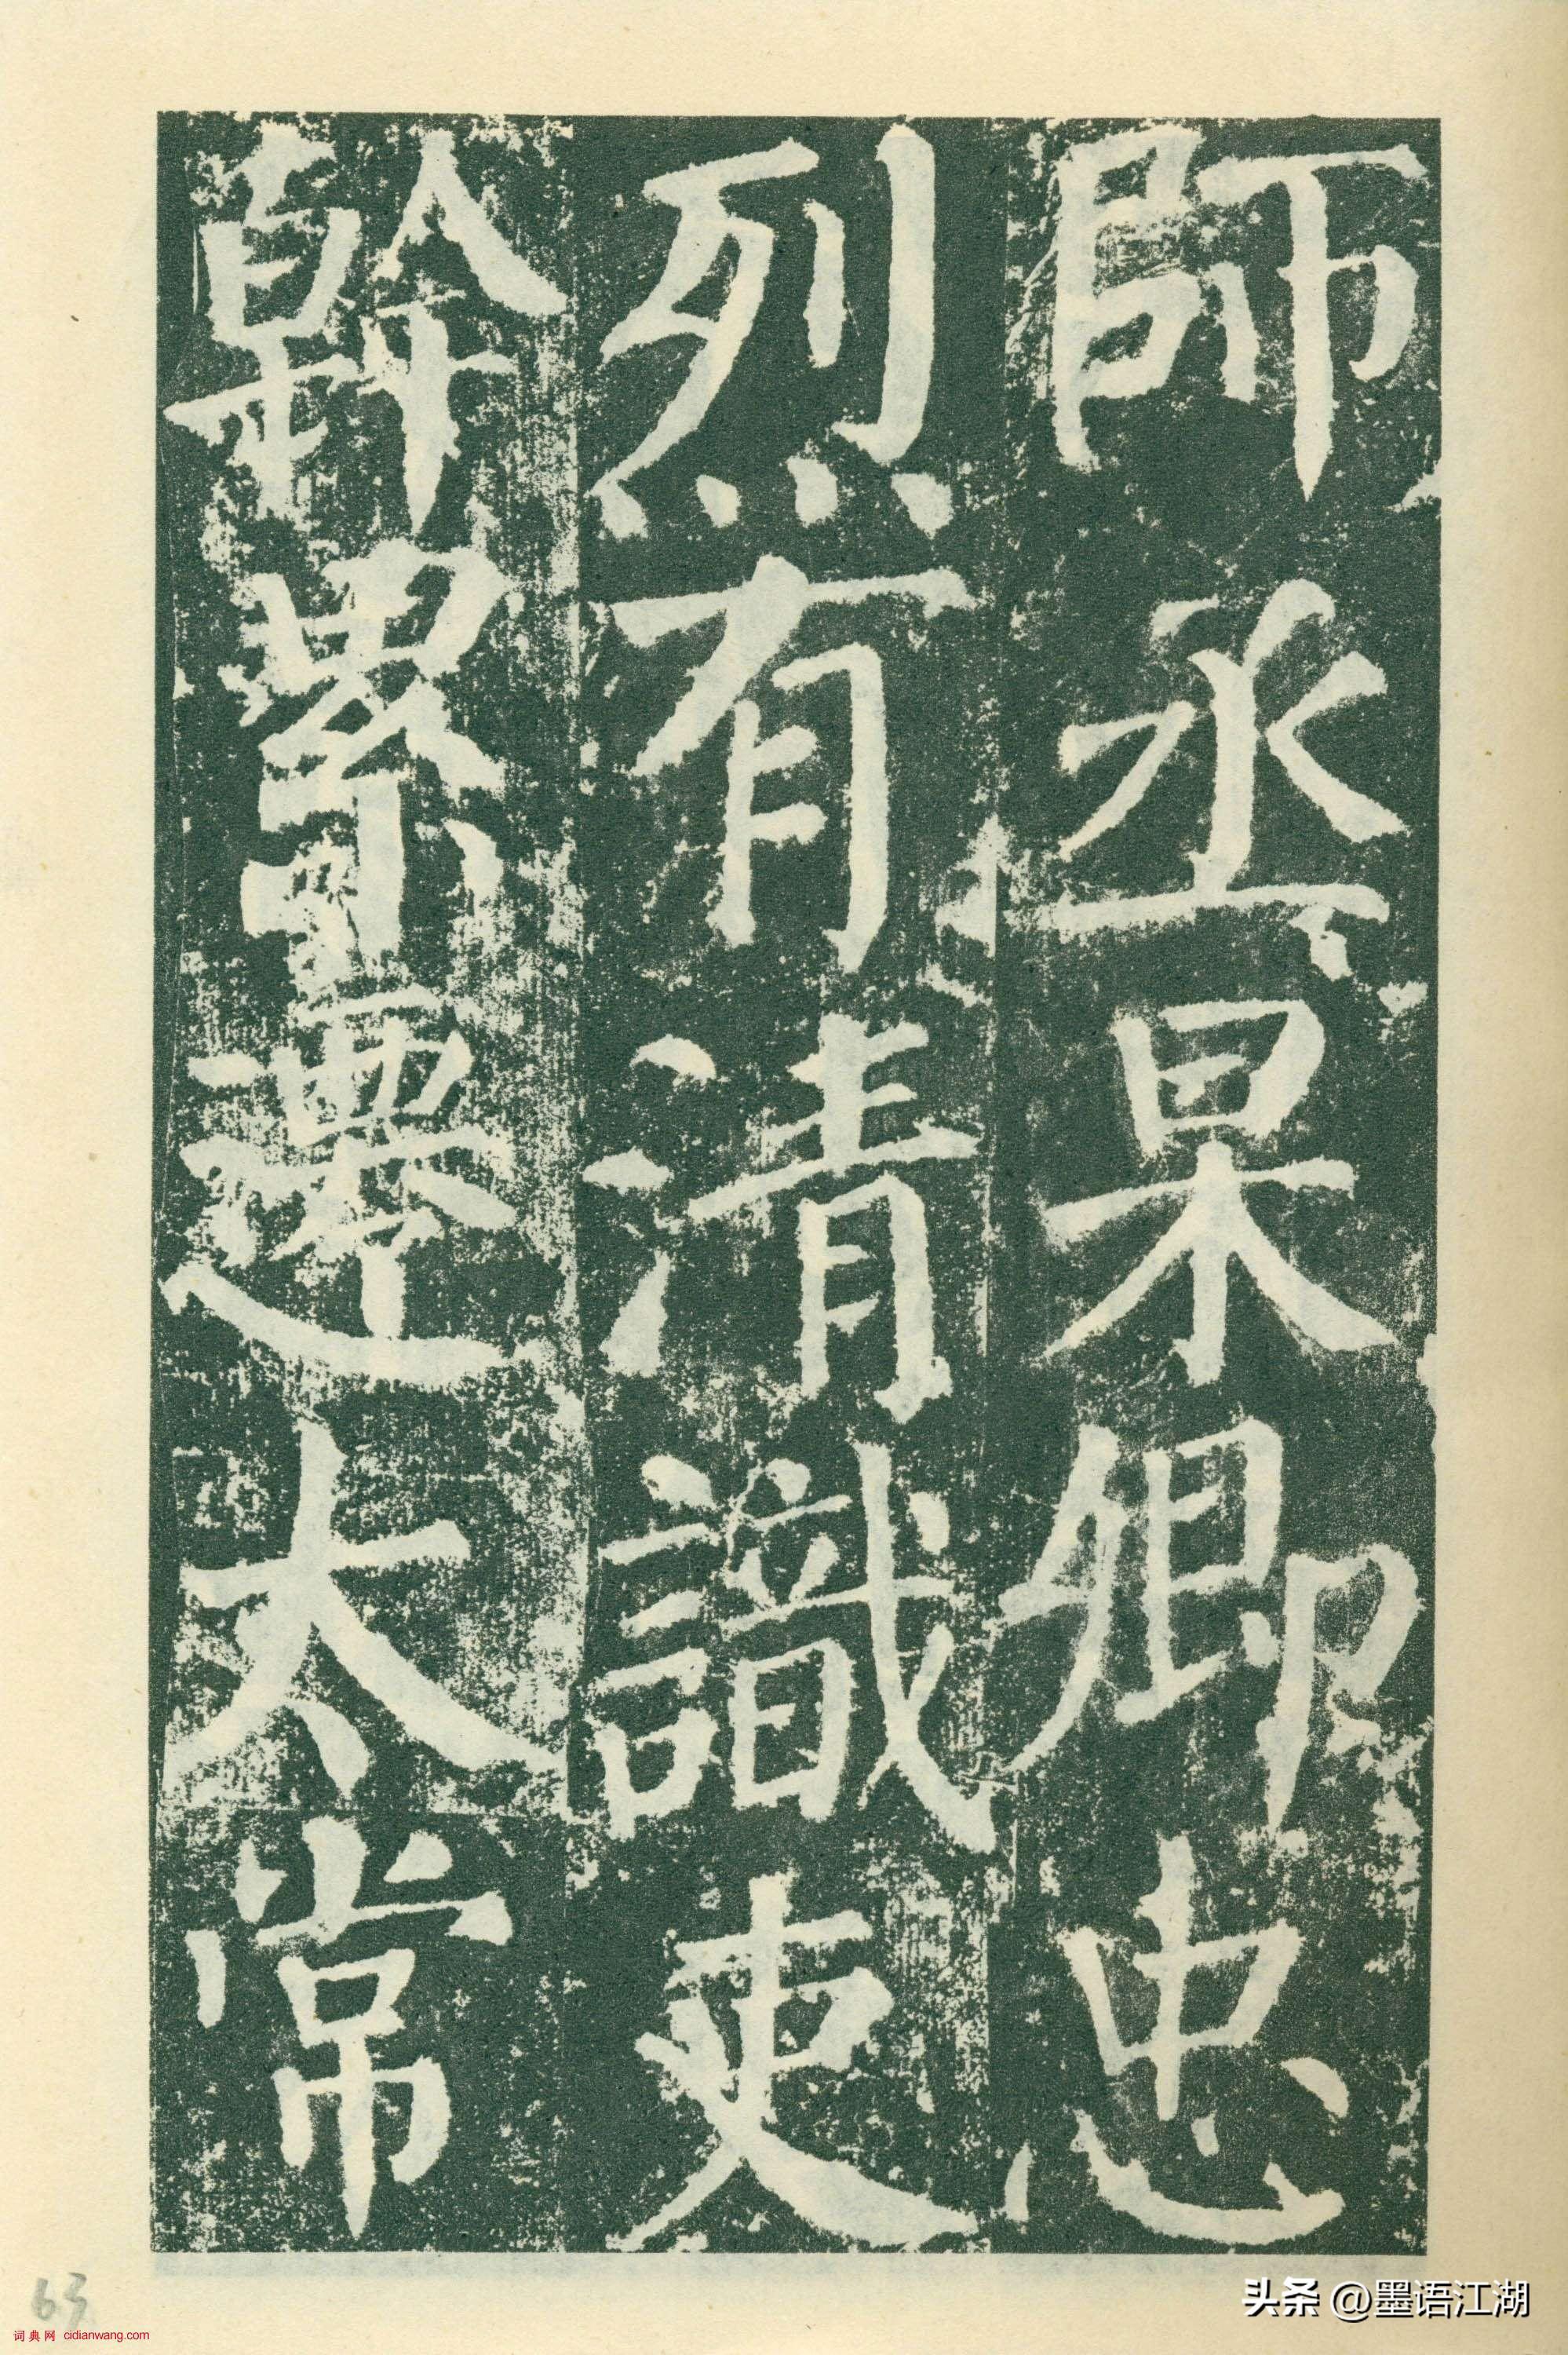 師丞杲卿忠
烈有清識吏
幹累遷太常
63
词典网 cidianwang.com
头条 @墨语江湖